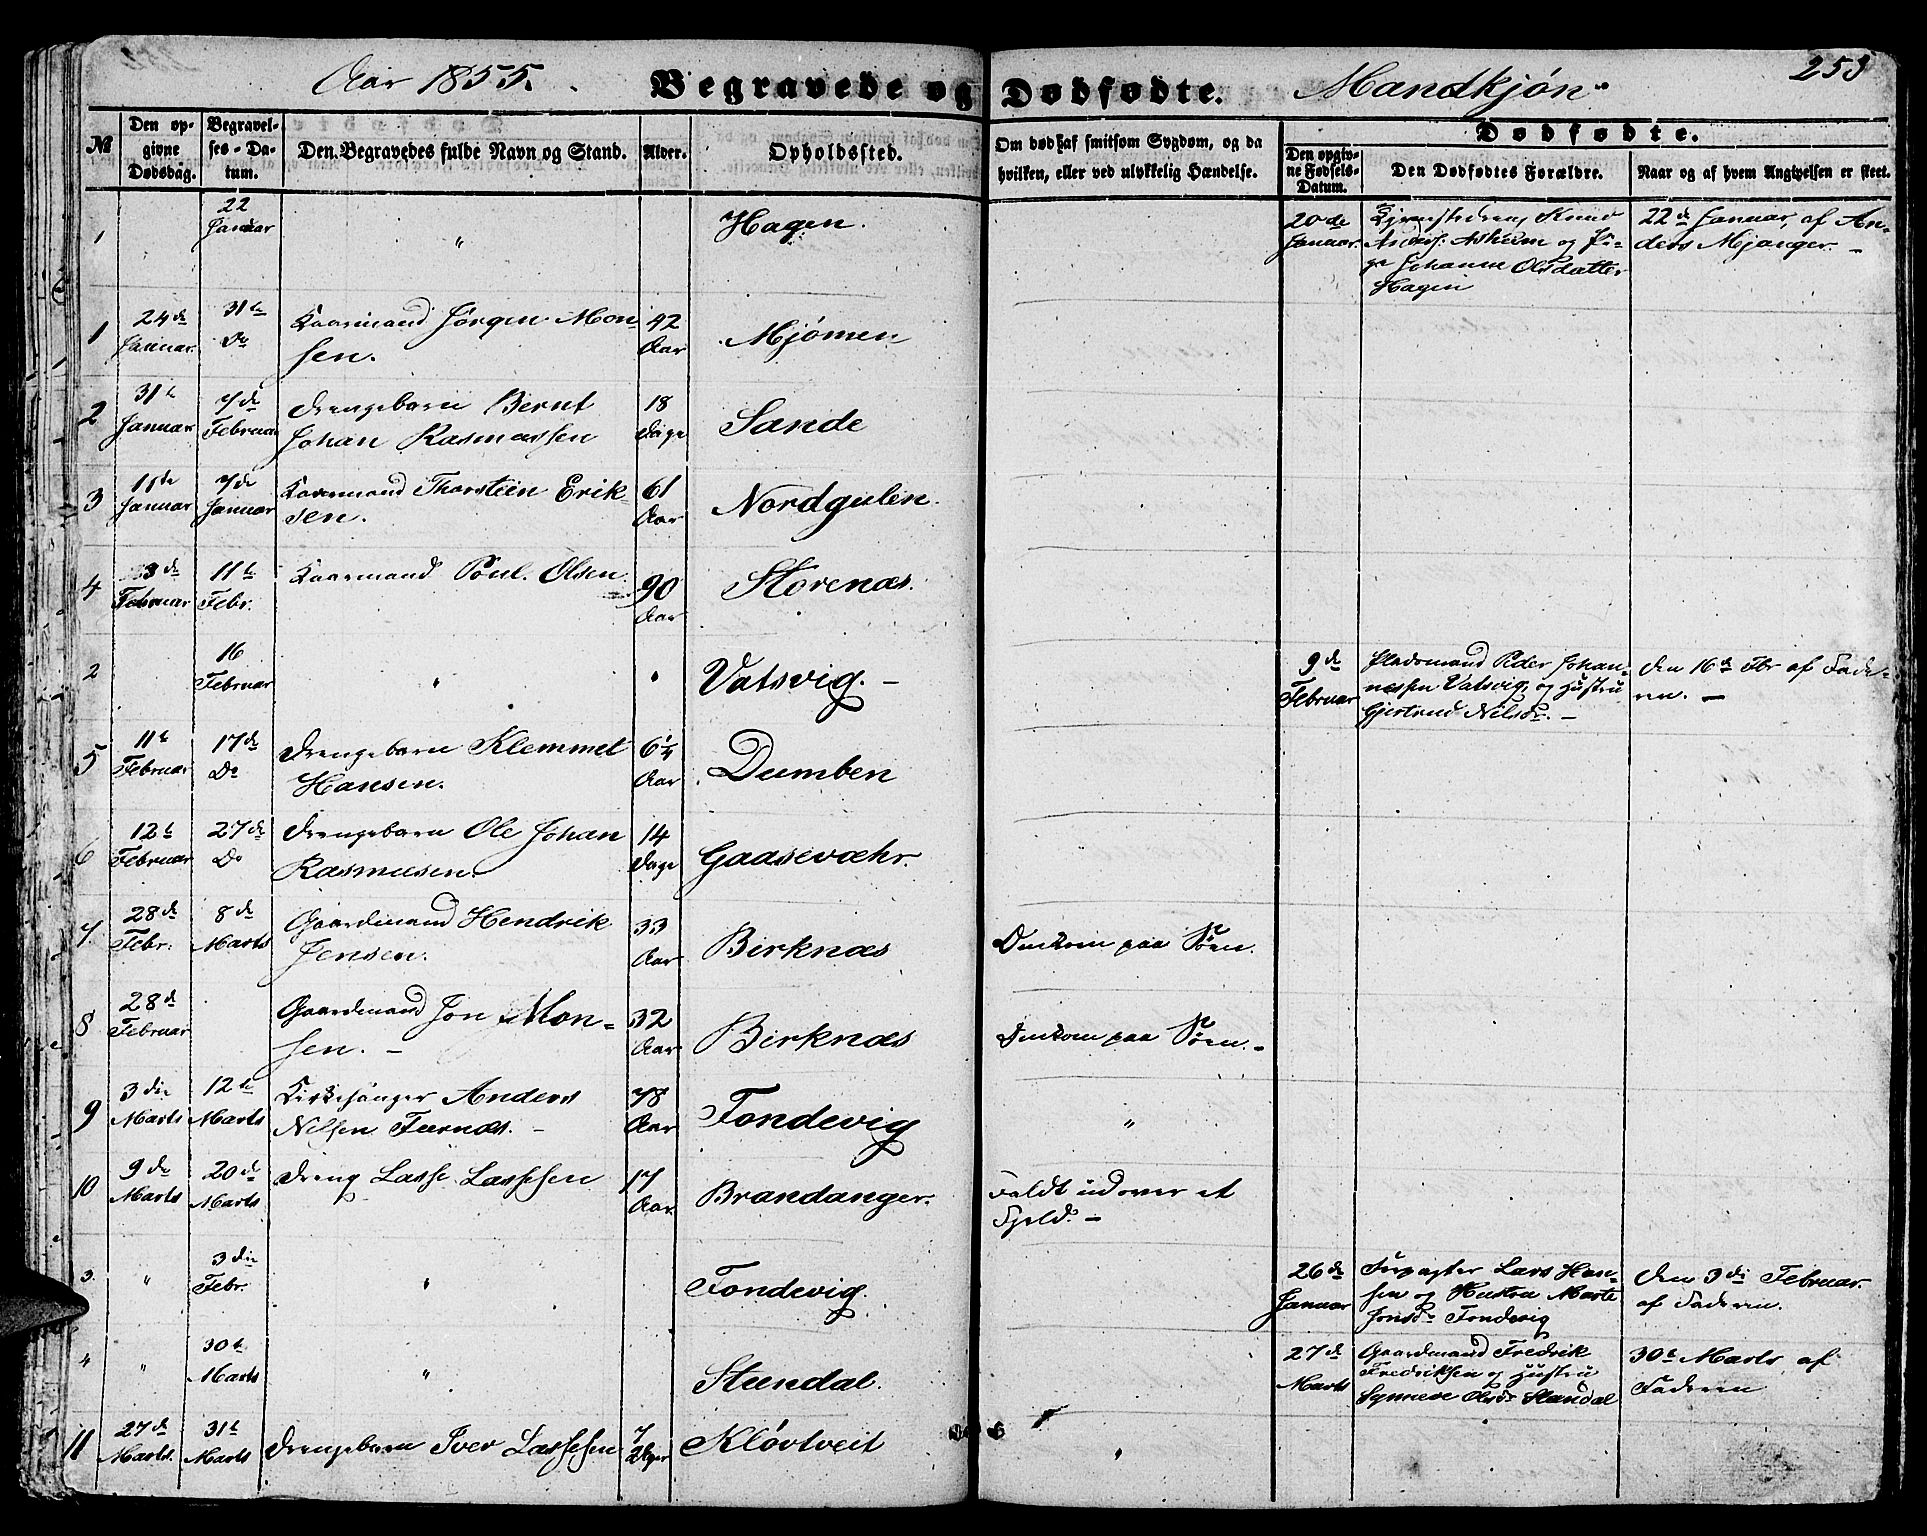 Aar 1855.
Begravede og Dødfødte.
Mandkjøn
253
№
Den op-
givne
Dødsdag.
Begravel-
ses-Da-
tum.
Den Begravedes fulde Navn og Stand.
Alder.
Opholdssted.
Om død af smitsom Sygdom, og da
hvilken, eller ved ulykkelig Hændelse.
Dødfødte.
Den opgiv-
ne Fødsels-
Datum.
Den Dødfødtes Forældre.
Naar og af hvem Angivelsen er skeet.
1
22
Januar
"
Hagen.
20de
Januar.
Tjenestedreng Knud
Anders. Asheim og Pi-
ge Johanne Olsdatter
Hagen
22de Januar, af An-
ders Mjanger. -
1
24de
Januar.
31te
Do
Kaarmand Jørgen Mon-
sen.
42
Aar
Mjömen
2
31te
Januar
7de
Februar
Drengebarn Bernt
Johan Rasmussen
18
Dage
Sande
3
11te
Januar
7de
Januar
Kaarmand Thorstein Erik-
sen.
61
Aar
Nordgulen.
4
3de
Februar
11te
Febr.
Kaarmand Poul Olsen.
90
Aar
Storenæs.
2
16
Februar
"
"
Vatsvig. -
9de
Februar
Pladsmand Peder Johan-
nessen Vatsvig og Hustru
Gjertrud Nilsdr. -
den 16de Fbr af Fade-
ren. -
5
11te
Februar
17de
Do
Drengebarn Klemmet
Hansen.
6 1/4
Aar
Dumben
6
12te
Februar
27de
Do
Drengebarn Ole Johan
Rasmusen.
14
Dage
Gaasevæhr.
7.
28de
Febr.
8de
Marts
Gaardmand Hendrik
Jensen.
33
Aar
Birknæs
Omkom paa Søen.
8
28de
Februar
Gaardmand Jon Mon-
sen. -
32
Aar
Birknæs
Omkom paa Søen. -
9
3die
Marts
12te
Marts
Kirkesanger Anders
Nilsen Furnæs. -
78
Aar
Tondevig
"
10
9de
Marts
20de
Marts
Dreng Lasse Lassesen
17
Aar
Brandanger.
Faldt udover et
Fjeld. -
3.
"
3die
Febr.
"
Tondevig.
26de
Januar
Forpagter Lars Han-
sen og Hustru Marte
Jonsdr Tondevig
den 3die Februar.
af Faderen.
4
"
30te
Marts
"
Steendal.
27de
Marts
Gaardmand Fredrik
Fredriksen og Hustru
Synneve Olsdr Standal
30te Marts, af
Faderen
11
27de
Marts.
31te
Marts
Drengebarn Iver Lassesen
7
Uger
Kløvtveit
"